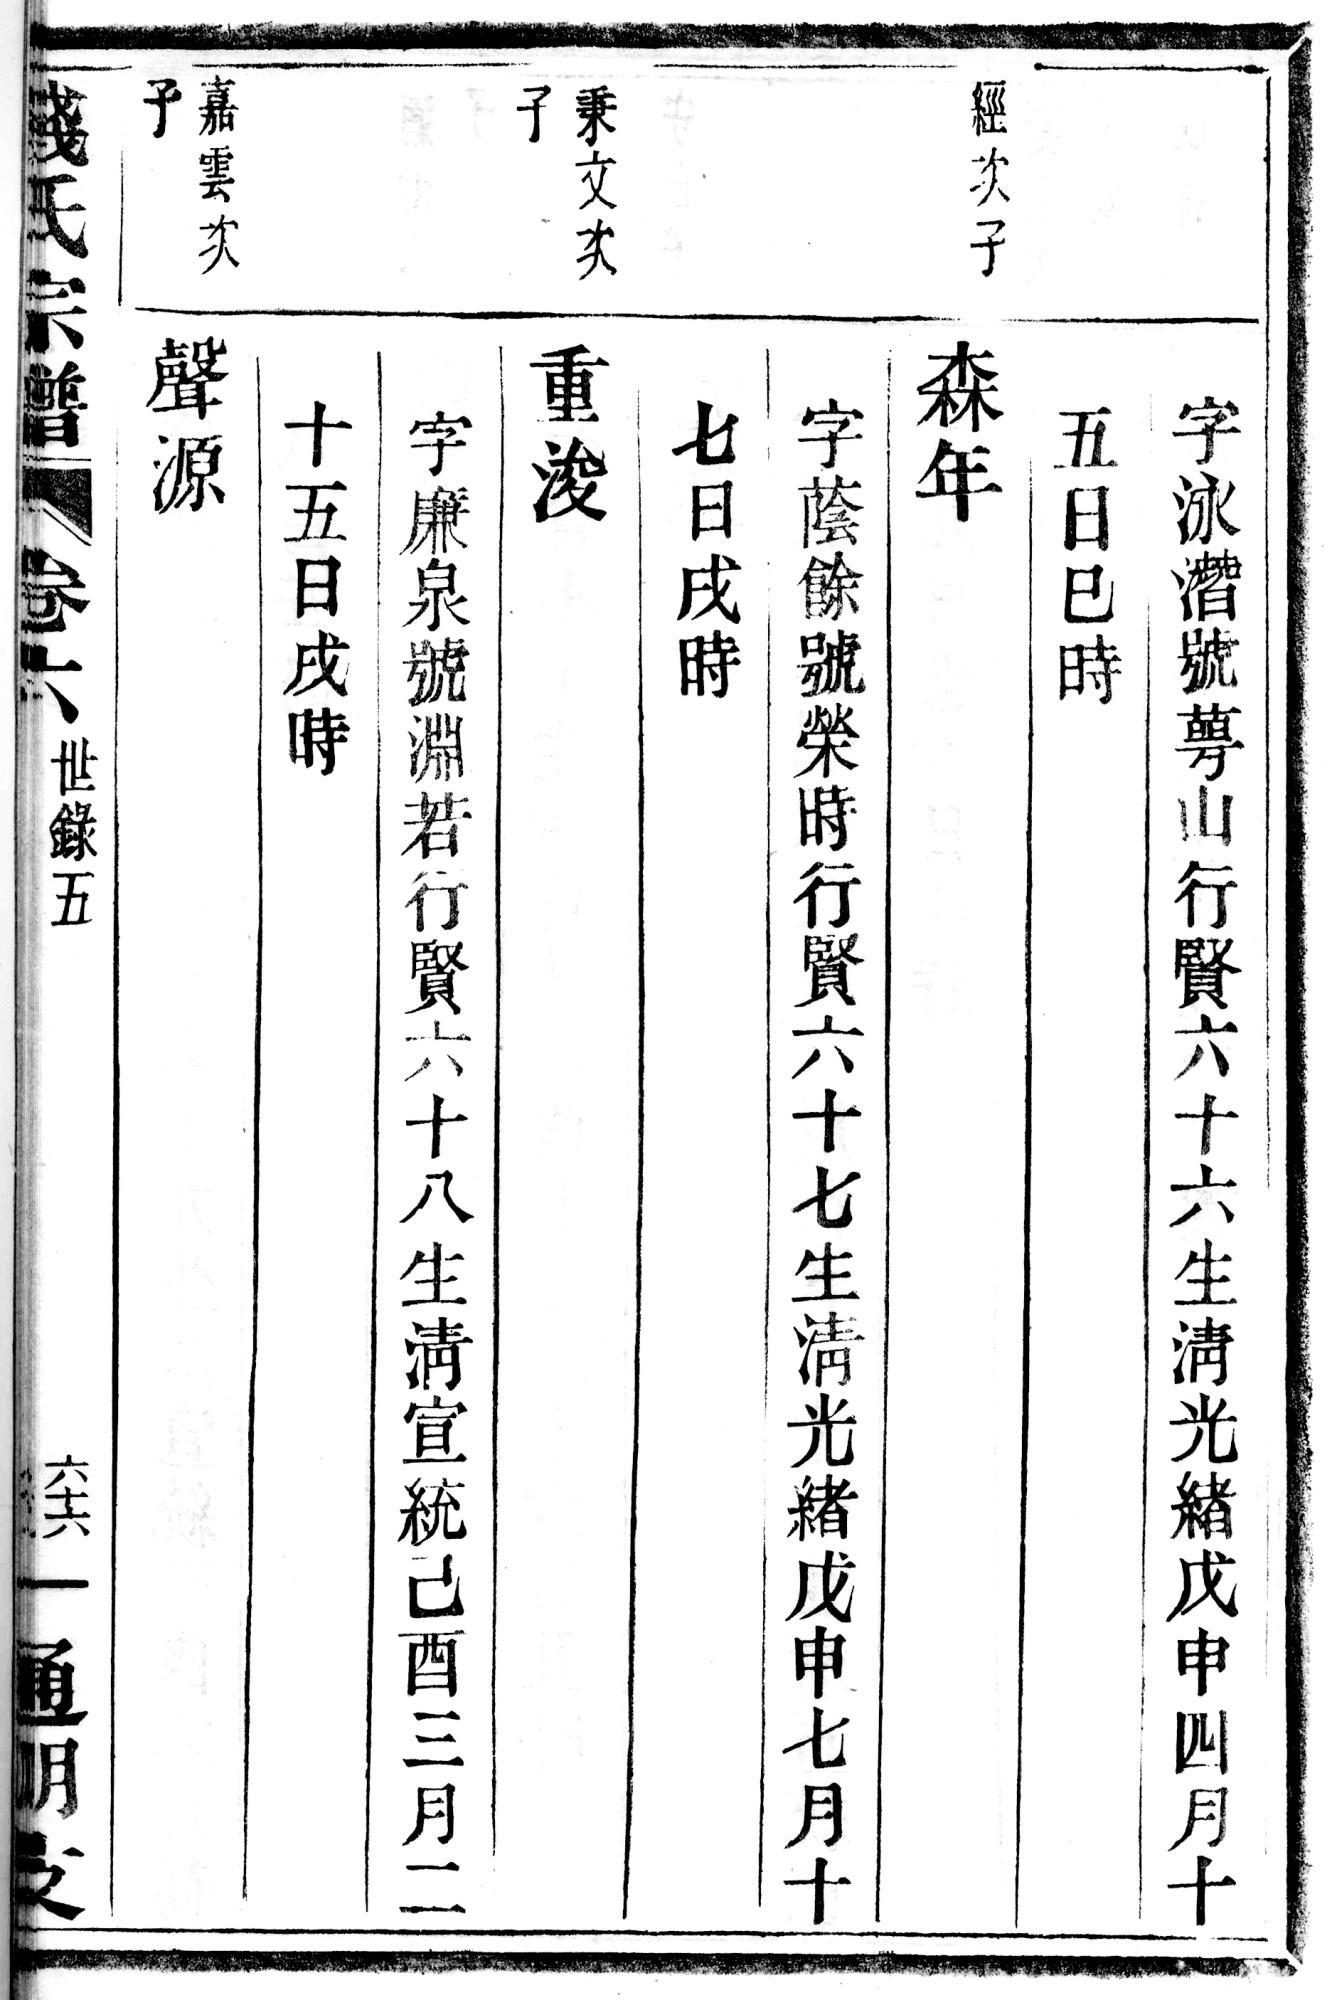 字泳濳號蕚山行賢六十六生淸光緖戊申四月十
五日巳時
經次子
森年
字蔭餘號榮時行賢六十七生淸光緖戊申七月十
七日戌時
秉文次
子
重浚
字廉泉號淵若行賢六十八生淸宣統己酉三月二
十五日戌時
嘉雲次
子
聲源
錢氏宗譜
卷六
世錄五
六十六
通明支